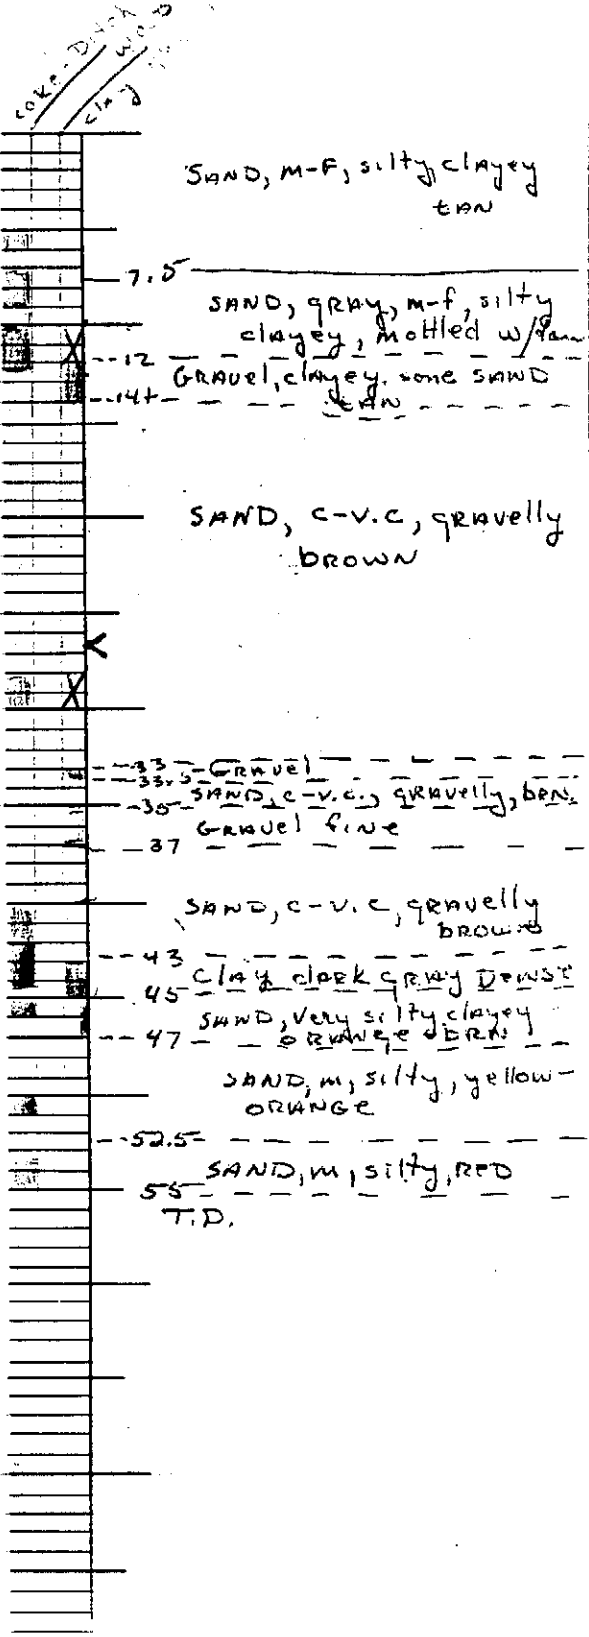 core-Ditch
clay
SAND, M-F, silty, clayey
tAN
7.5
SAND, gRAy, m-f, silty
clayey, mottled w/tan
12
GRAVEl, clayey, some SAND
tAN
14+
SAND, C-V.C, gRAvelly
bROWN
33 GRAVEl
33.5
SAND, c-v.c., gRAVelly, bRN.
35
GRAVEl fiNe
37
SAND, C-V.C, gRAVelly
bROWN
43
ClAy dARK GRAy DENSE
45
SAND, Very silty clayey
ORANge BRN
47
SAND, m, silty, yellow-
ORANGE
52.5
SAND, m, silty, RED
55
T.D.